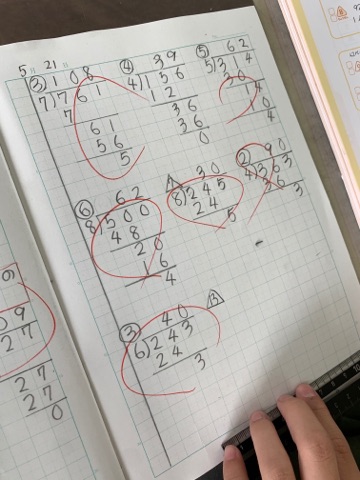 5 21
③ 108
7)761
7
61
56
5
④ 39
4)156
12
36
36
0
⑤ 62
5)314
30
14
0
4
⑥ 62
8)500
48
20
16
4
A 30
8)245
24
5
② 90
4)363
36
3
③ 40 B
6)243
24
3
09
27
27
27
0